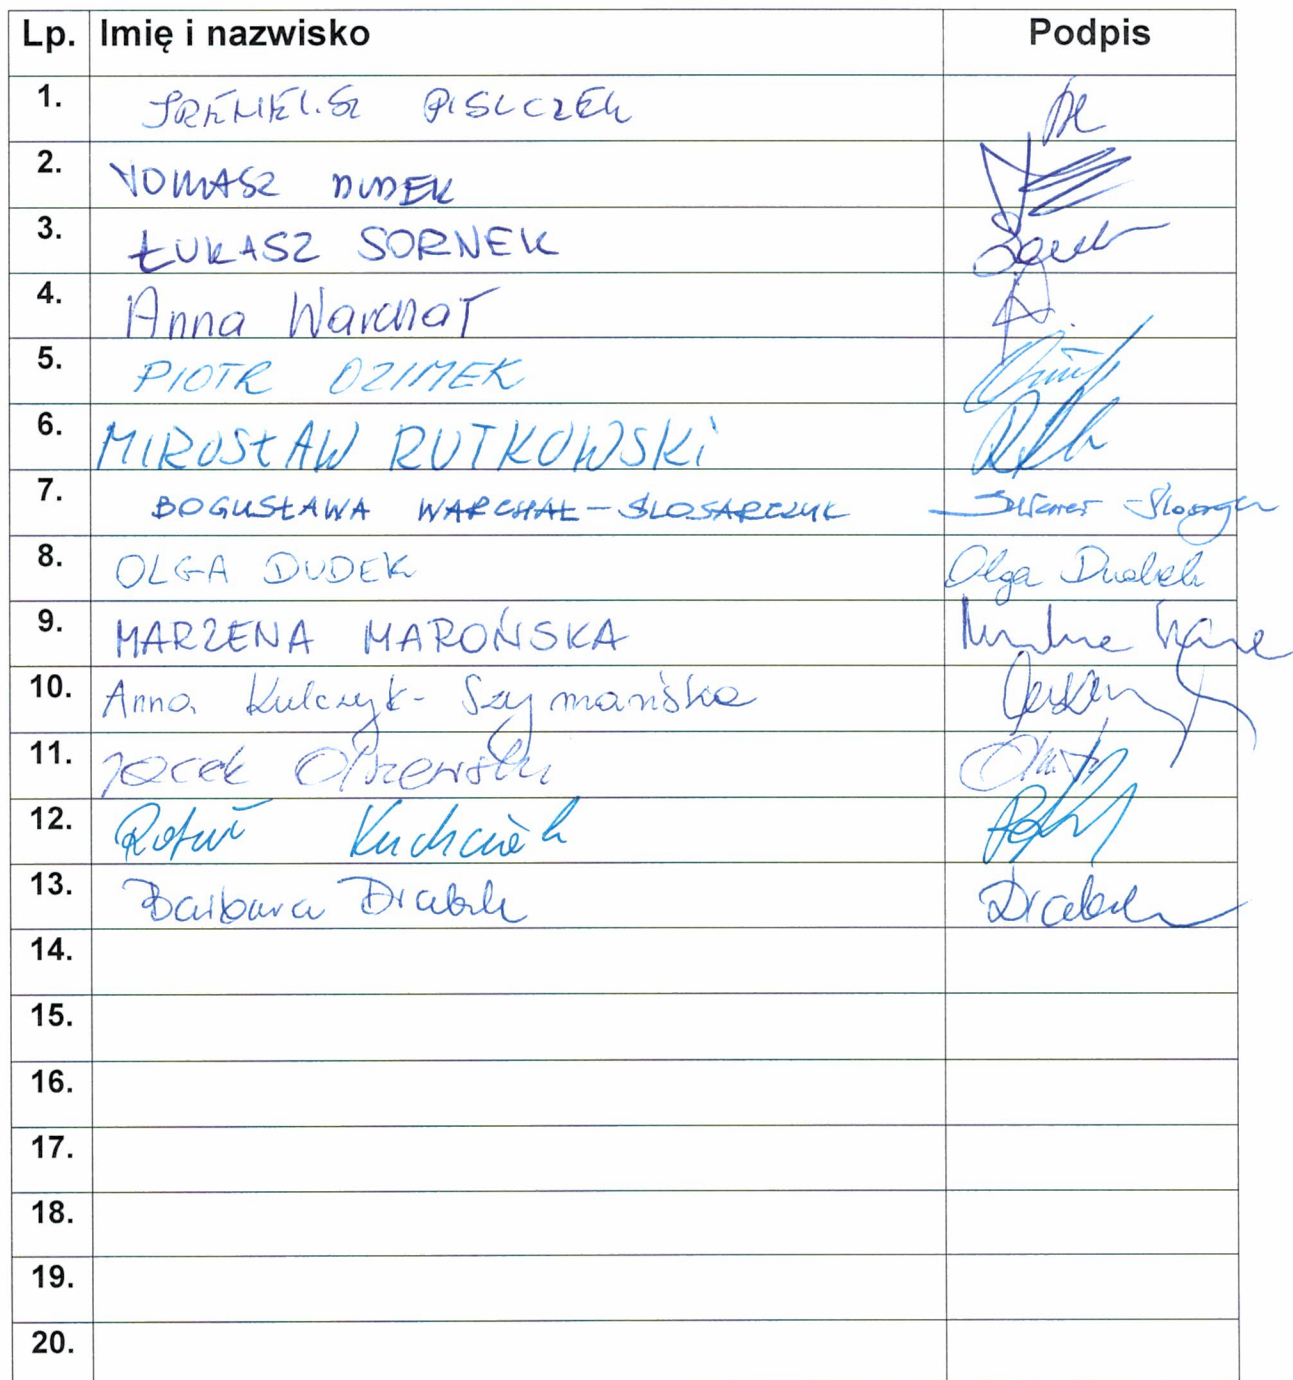 Lp. Imię i nazwisko Podpis
1.
2. TOMASZ DUDEK
3. ŁUKASZ SORNEK
4. Anna Warchał
5. PIOTR OZIMEK
6. MIROSŁAW RUTKOWSKI
7. BOGUSŁAWA WARCHAŁ-ŚLOSARCZYK
8. OLGA DUDEK Olga Dudek
9. MARZENA MAROŃSKA
10. Anna Kulczyk-Szymańska
11. Jacek Olszewski
12. Kuchciak
13. Barbara Drabik Drabik
14.
15.
16.
17.
18.
19.
20.